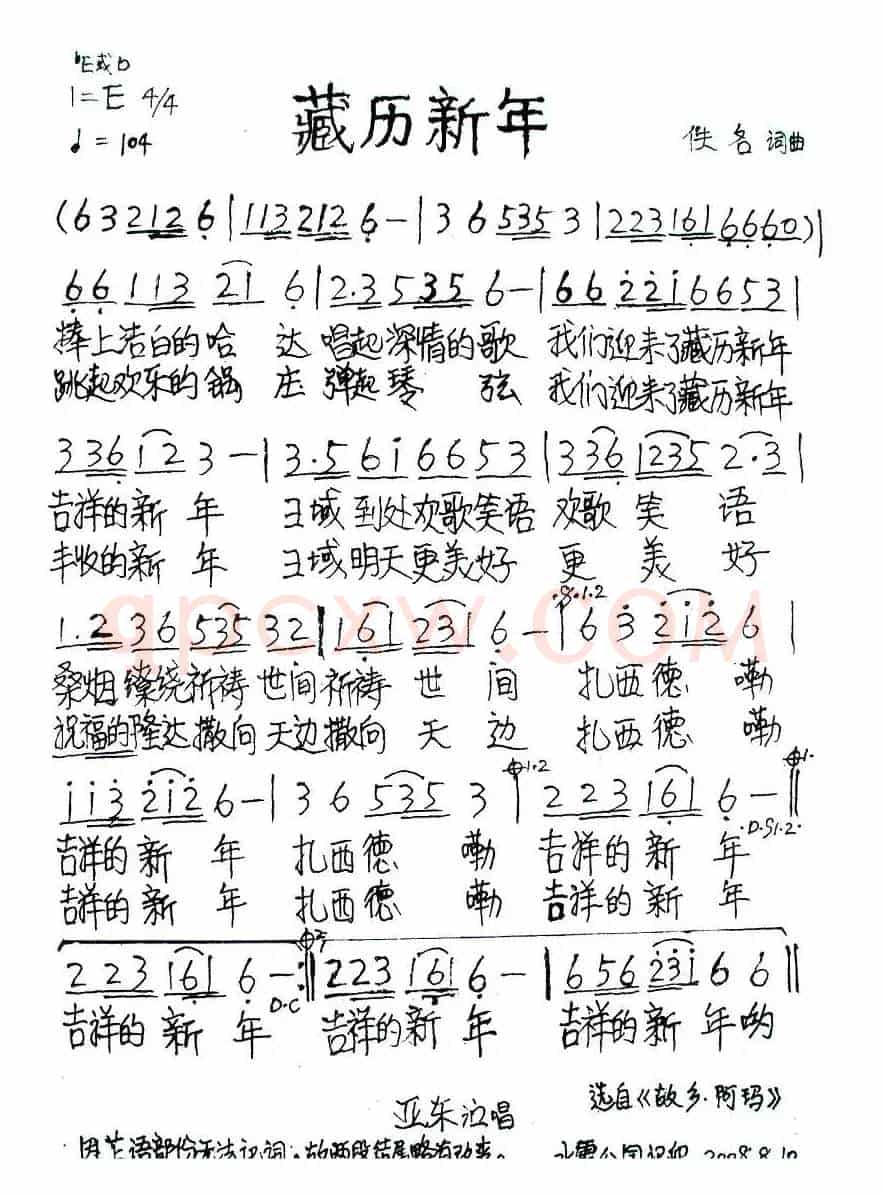 ♭E或D
1=E 4/4
♩=104
藏历新年
佚名 词曲
(6 3 2126|113 2126-|36 535 3|223 161 6660)|
66 113 21 6|2.3 535 6-|66 221 6653|
捧上洁白的哈 达 唱起深情的歌 我们迎来了藏历新年
跳起欢乐的锅 庄 弹起琴 弦 我们迎来了藏历新年
336 12 3-|3.5 61 6653|336 1235 2.3|
吉祥的新 年 王域到处欢歌笑语 欢歌 笑 语
丰收的新 年 王域明天更美好 更 美 好
qpcxw.com
1.2 36 535 32|161 231 6-|63 212 6|
桑烟缭绕祈祷世间祈祷 世 间 扎西德 嘞
祝福的隆达撒向天边撒向 天 边 扎西德 嘞
113 212 6-|36 535 3|223 161 6-‖
D.S1.2.
吉祥的新 年 扎西德 嘞 吉祥的新 年
吉祥的新 年 扎西德 嘞 吉祥的新 年
223 161 6-:‖223 161 6-|656 231 6 6‖
D.C
吉祥的新 年 吉祥的新 年 吉祥的新 年哟
选自《故乡·阿玛》
亚东演唱
2008.8.10